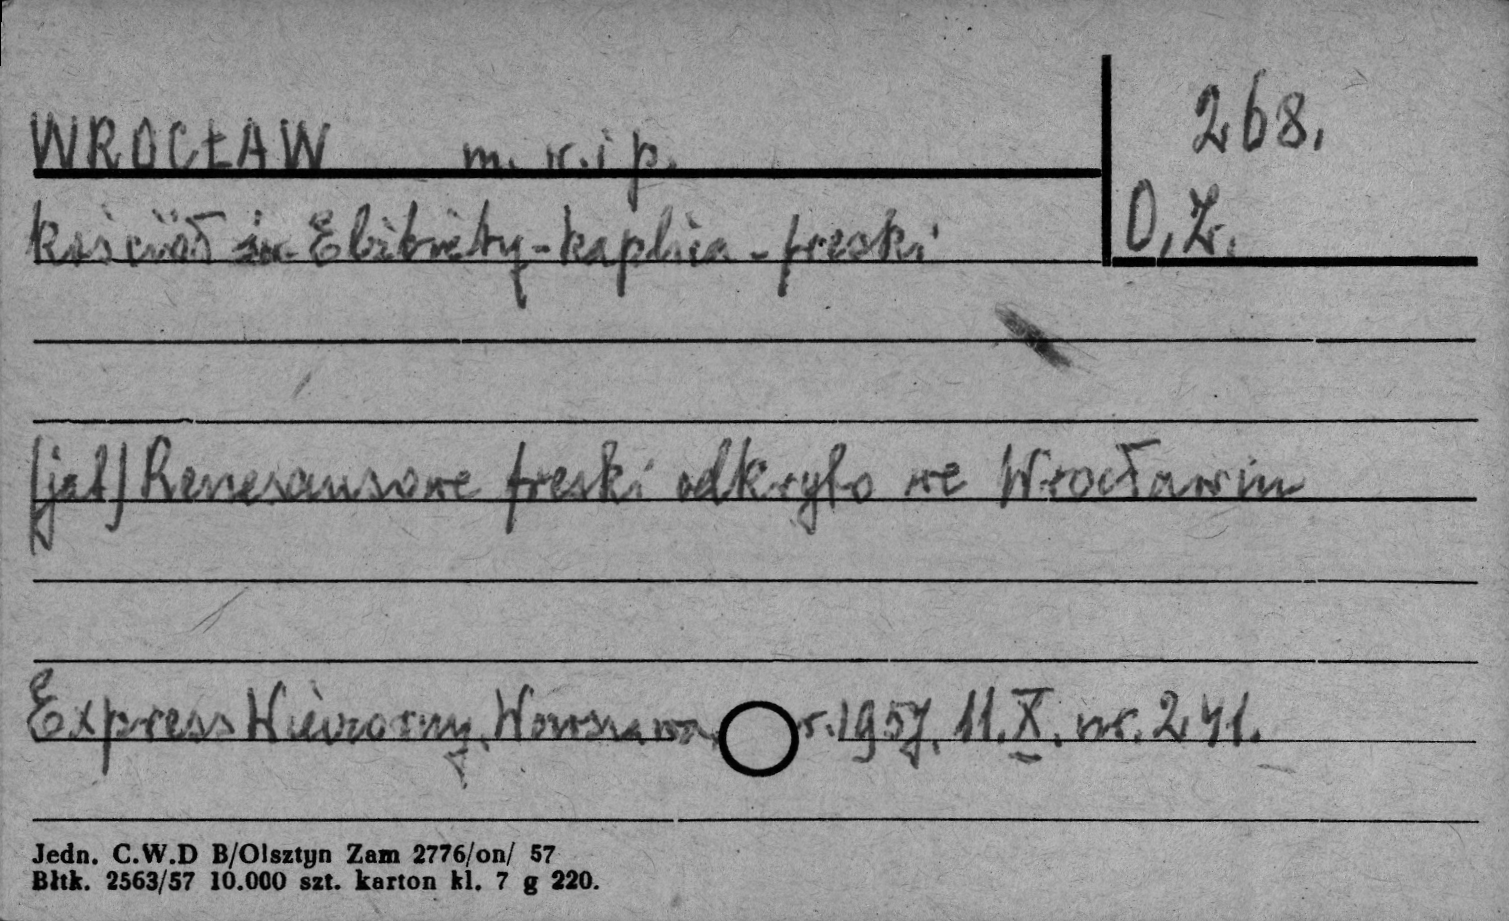 WROCŁAW m. w. i p.
268.
kościół św. Elżbiety - kaplica - freski
O.Z.
(jat) Renesansowe freski odkryto we Wrocławiu
Express Wieczorny, Warszawa, r. 1957, 11.X. nr. 241.
Jedn. C.W.D B/Olsztyn Zam 2776/on/ 57
Bltk. 2563/57 10.000 szt. karton kl. 7 g 220.